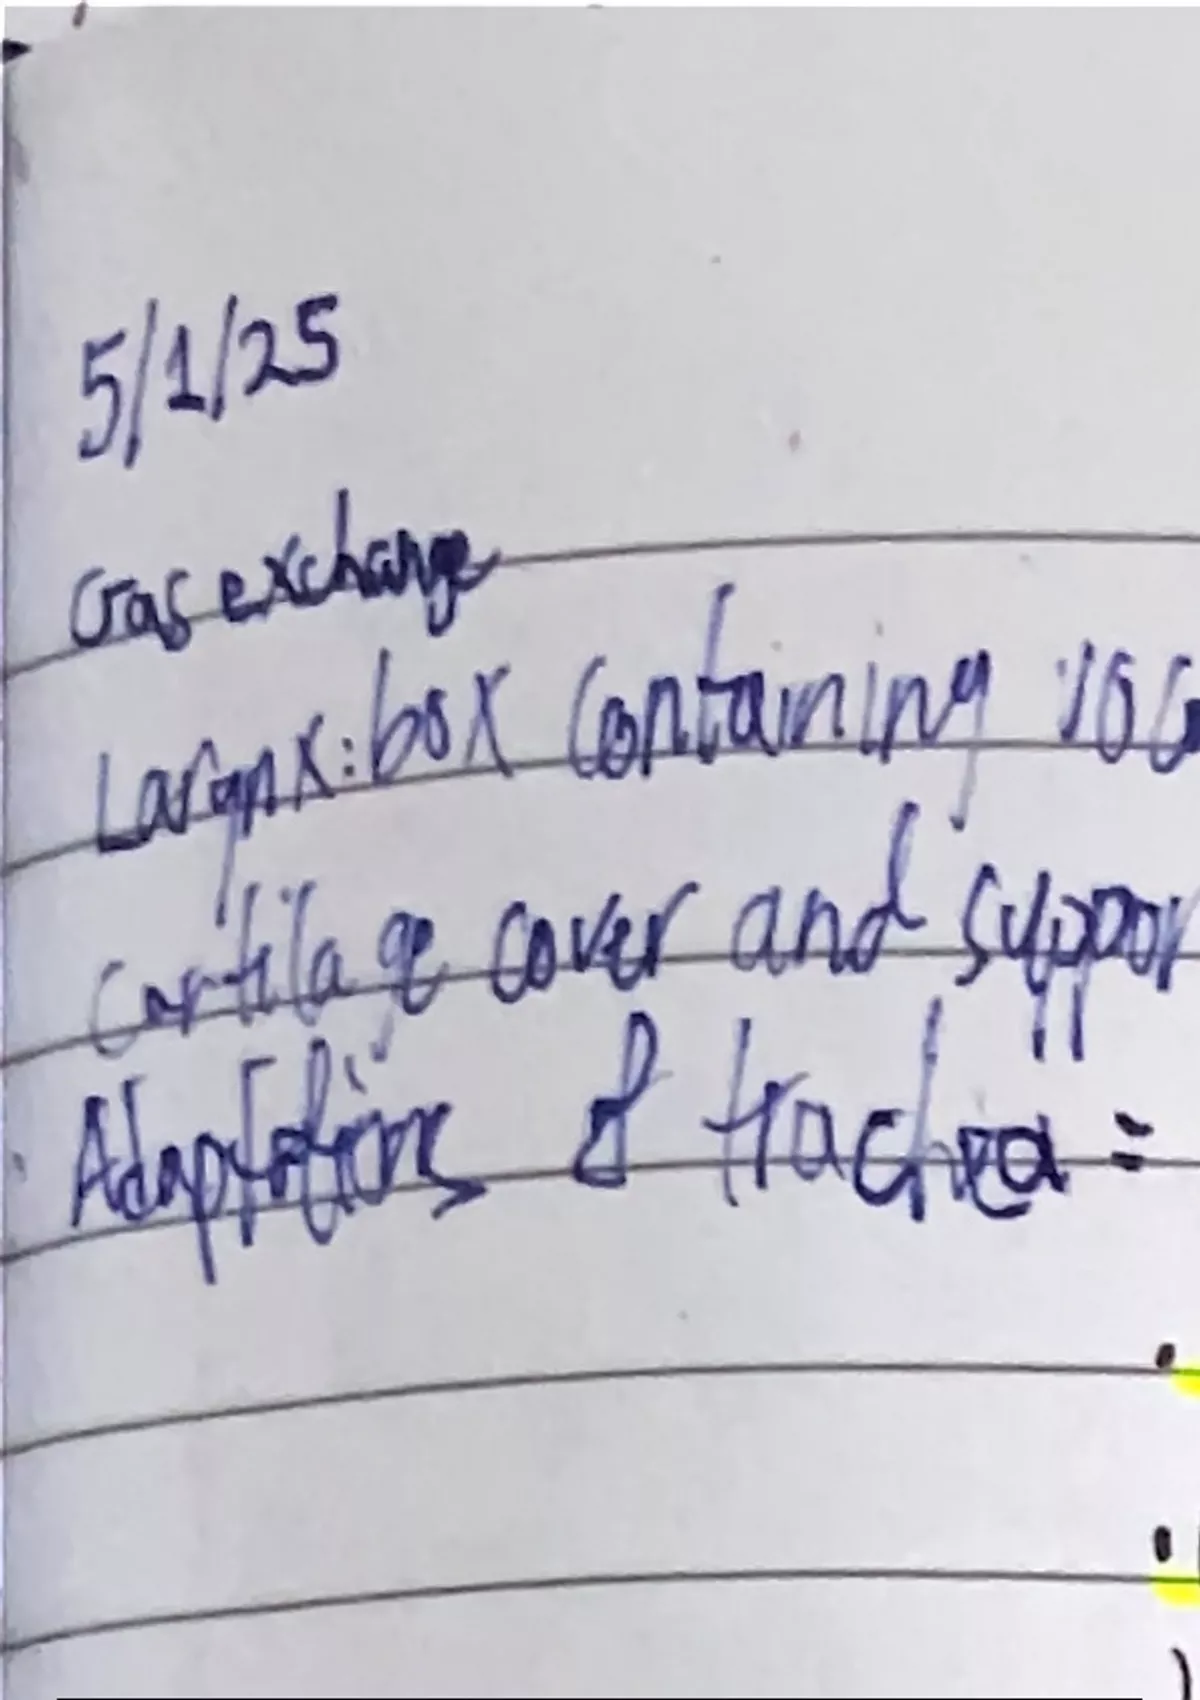 5/1/25
Gas exchange
Larynx: box containing
cartilage cover and suppor
Adaptations of trachea =